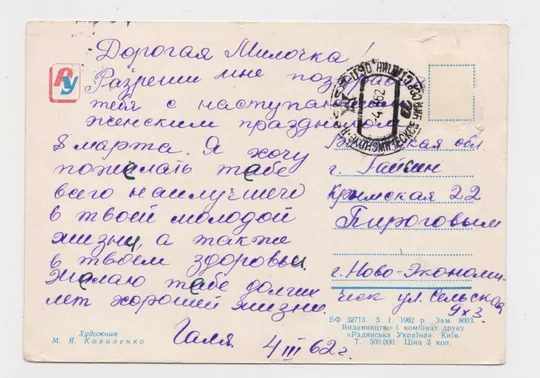 Дорогая Милочка!
Разреши мне
тебя с наступа
женским праздником
8 марта. Я хочу
пожелать тебе
всего наилучшего
в твоей молодой
жизни, а также
в твоем здоровьи.
Желаю тебе долгих
лет хорошей жизни.
Галя. 4 III 62 г.
Художник
М. Я. Коваленко
РУ
обл.
г. Гайсин
Крымская 22
Пироговым
г. Ново-Экономи-
ческ ул. Сельская
9х3.
БФ 32713. 5. I. 1962 р. Зам. 8003.
Видавництво і комбінат друку
«Радянська Україна». Київ.
Т. 500.000 Ціна 3 коп.